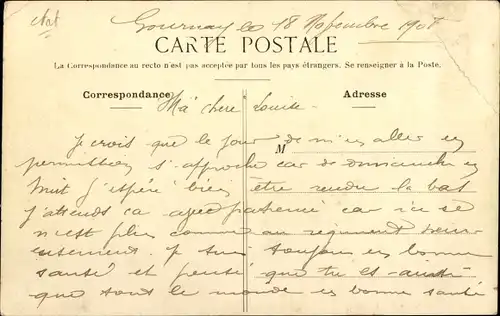 Gournay le 18 Novembre 190
CARTE POSTALE
La Correspondance au recto n'est pas acceptée par tous les pays étrangers. Se renseigner à la Poste.
Correspondance
Adresse
Ma chere Louise
M
Je crois que le jour de m'en aller en
permission s'approche car de dimanche en
huit j'espére bien être rendu la bas
j'attends ca avec patience car ici se
n'est plus comme au regiment
Je suis toujours en bonne
santé et pense que tu es aussi
que tout le monde en bonne santé